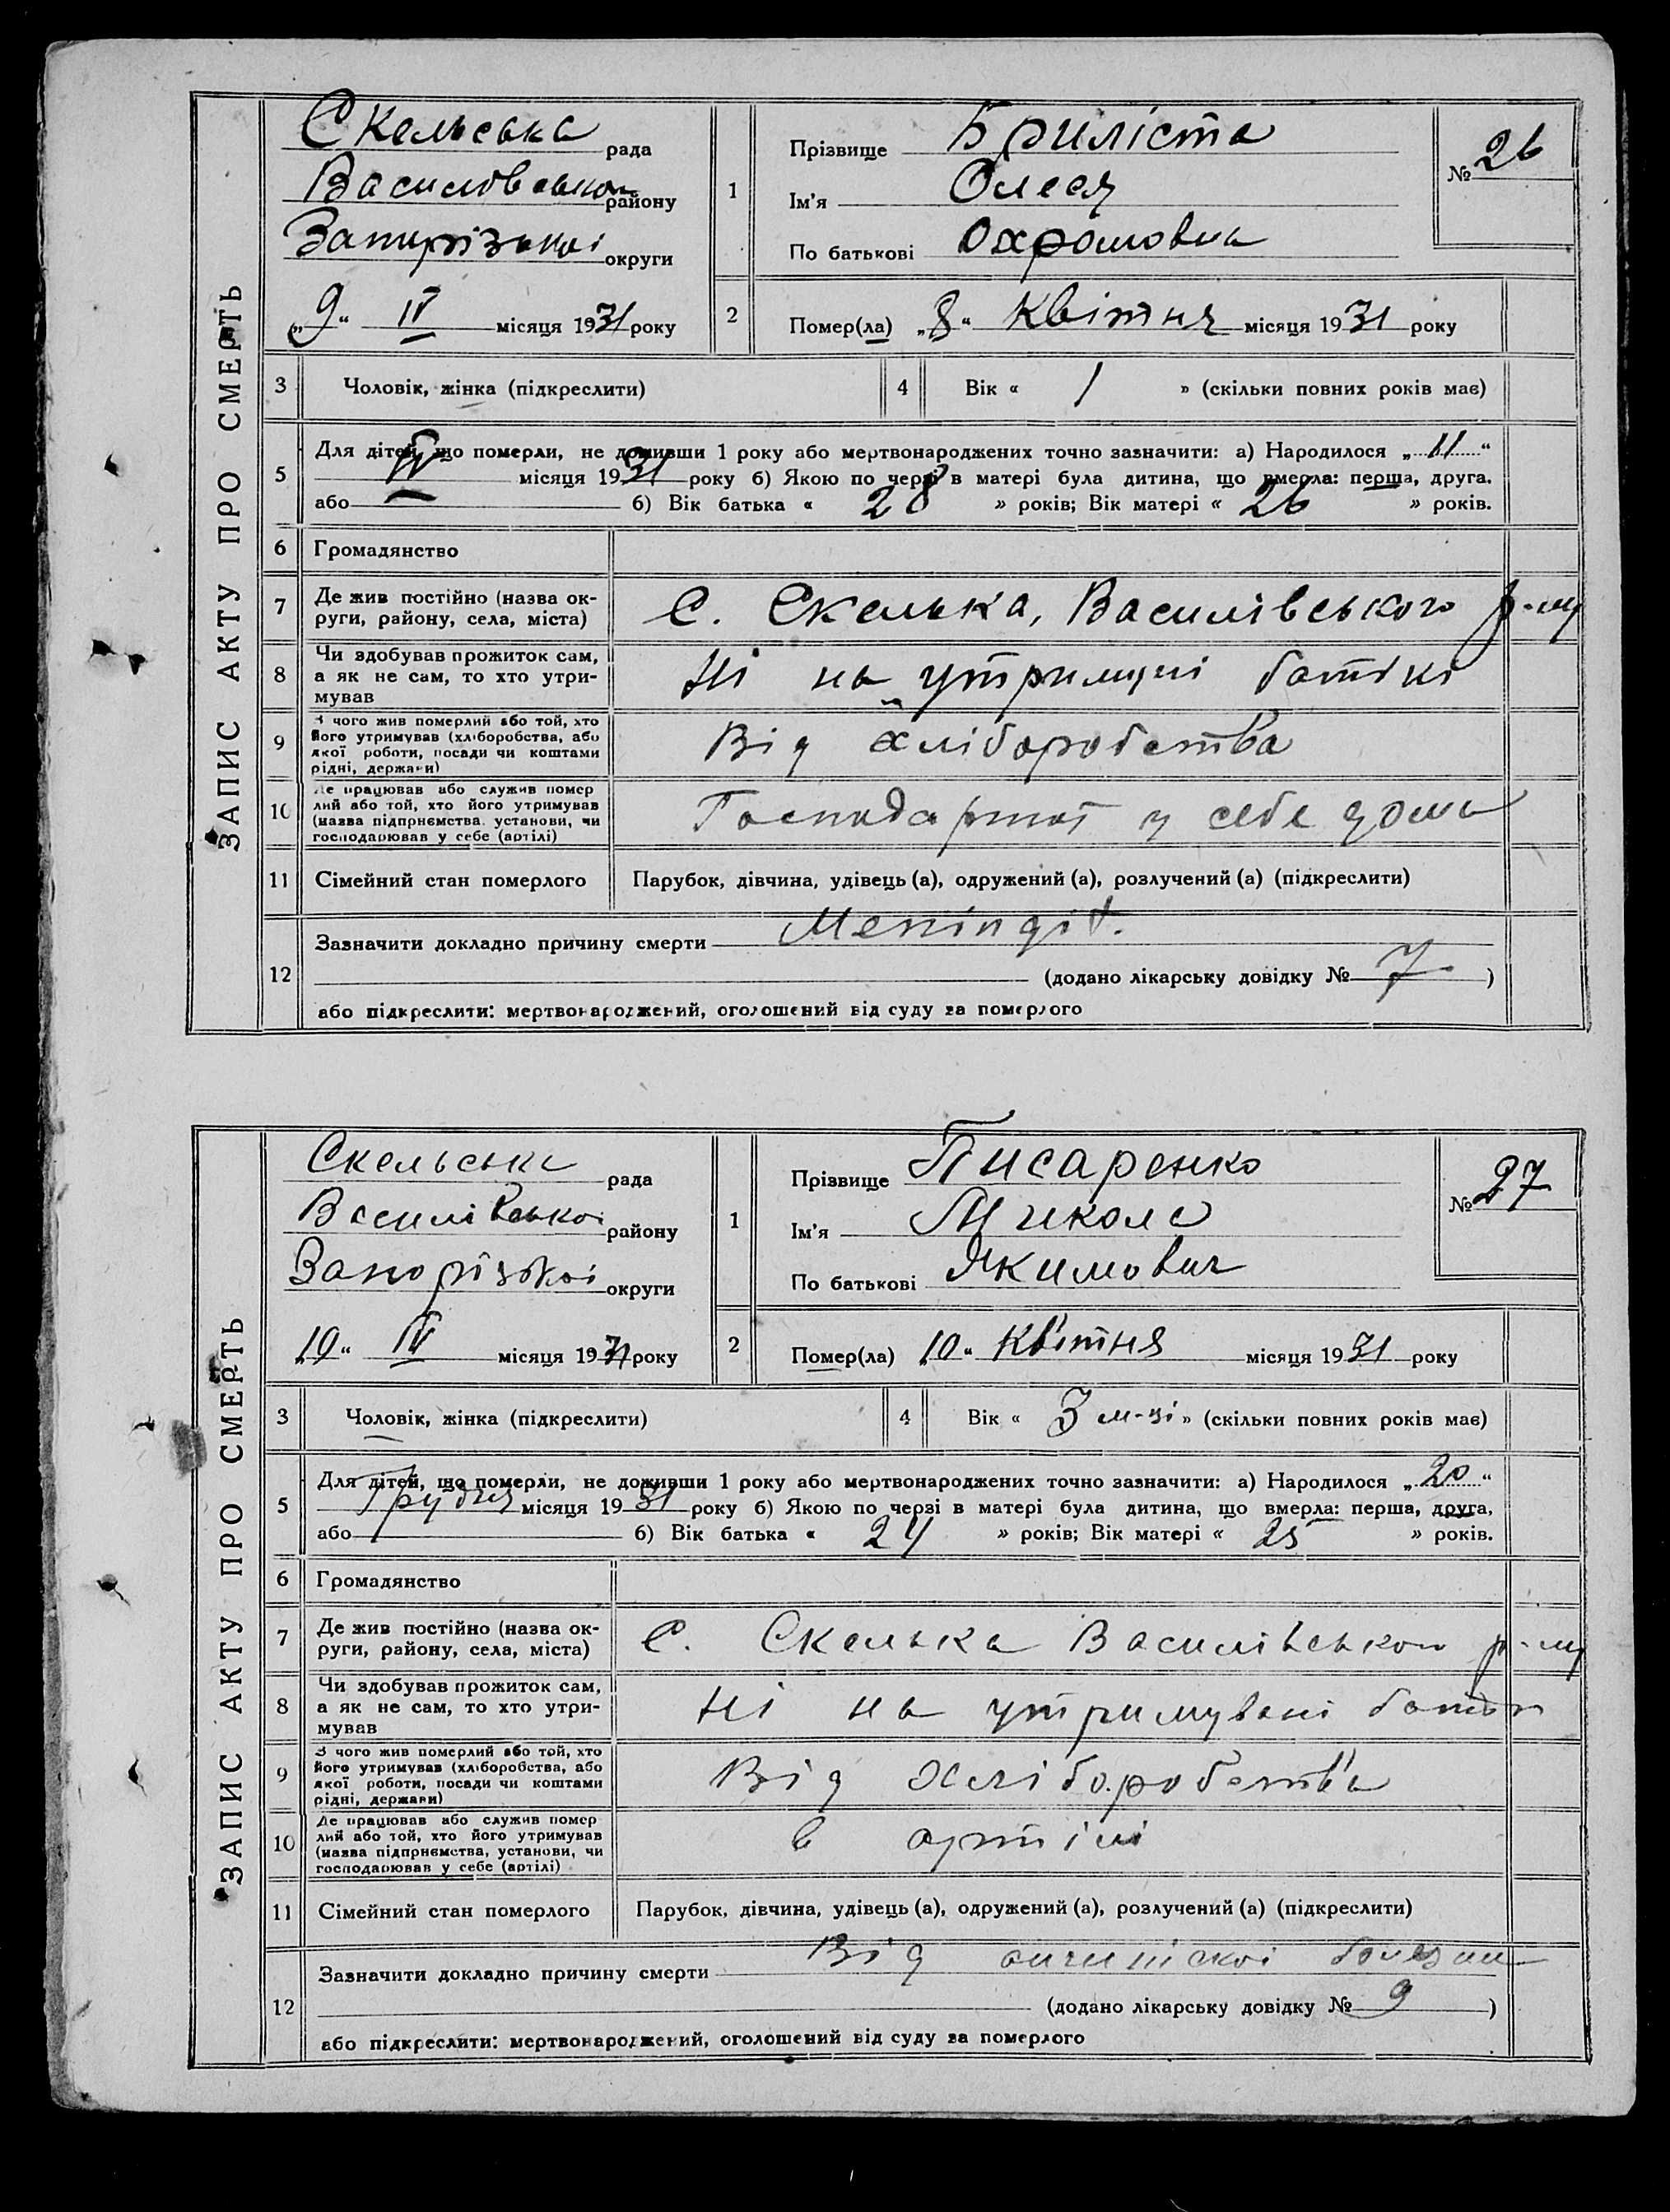 ЗАПИС АКТУ ПРО СМЕРТЬ
Скельська рада
Василівської району
Запорізької округи
„9“ IV місяця 1931 року
1 Прізвище Бриліста
Ім'я Олеся
По батькові Охромовна
№ 26
2 Помер(ла) „8“ Квітня місяця 1931 року
3 Чоловік, жінка (підкреслити)
4 Вік « 1 » (скільки повних років має)
5 Для дітей, що померли, не доживши 1 року або мертвонароджених точно зазначити: а) Народилося „11“
IV місяця 1931 року б) Якою по черзі в матері була дитина, що вмерла: перша, друга,
або б) Вік батька « 28 » років; Вік матері « 26 » років.
6 Громадянство
7 Де жив постійно (назва ок-
руги, району, села, міста) С. Скелька, Василівського р-ну
8 Чи здобував прожиток сам,
а як не сам, то хто утри-
мував Ні на утриманні
9 З чого жив померлий або той, хто
його утримував (хліборобства, або
якої роботи, посади чи коштами
рідні, держави) Від хліборобства
10 Де працював або служив помер
лий або той, хто його утримував
(назва підприємства, установи, чи
господарював у себе (артілі) у себе дома
11 Сімейний стан померлого Парубок, дівчина, удівець (а), одружений (а), розлучений (а) (підкреслити)
12 Зазначити докладно причину смерти Менінгіт.
(додано лікарську довідку № 7 )
або підкреслити: мертвонароджений, оголошений від суду за померлого
ЗАПИС АКТУ ПРО СМЕРТЬ
Скельська рада
Василівської району
Запорізької округи
„10“ IV місяця 1931 року
1 Прізвище Писаренко
Ім'я Микола
По батькові Якимович
№ 27
2 Помер(ла) „10“ Квітня місяця 1931 року
3 Чоловік, жінка (підкреслити)
4 Вік « 3 м-ці » (скільки повних років має)
5 Для дітей, що померли, не доживши 1 року або мертвонароджених точно зазначити: а) Народилося „20“
Грудня місяця 1931 року б) Якою по черзі в матері була дитина, що вмерла: перша, друга,
або б) Вік батька « 24 » років; Вік матері « 25 » років.
6 Громадянство
7 Де жив постійно (назва ок-
руги, району, села, міста) С. Скелька Василівського р-ну
8 Чи здобував прожиток сам,
а як не сам, то хто утри-
мував Ні на утримувані
9 З чого жив померлий або той, хто
його утримував (хліборобства, або
якої роботи, посади чи коштами
рідні, держави) Від хліборобства
10 Де працював або служив помер
лий або той, хто його утримував
(назва підприємства, установи, чи
господарював у себе (артілі) в артілі
11 Сімейний стан померлого Парубок, дівчина, удівець (а), одружений (а), розлучений (а) (підкреслити)
12 Зазначити докладно причину смерти Від
(додано лікарську довідку № 9 )
або підкреслити: мертвонароджений, оголошений від суду за померлого